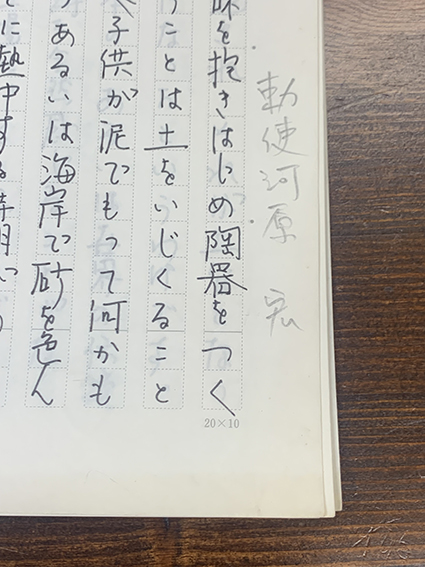 勅使河原 宏
味を抱きはじめ陶器をつく
ことは土をいじくること
子供が泥でもって何かも
あるいは海岸で砂を色ん
に熱中する時期が
20×10